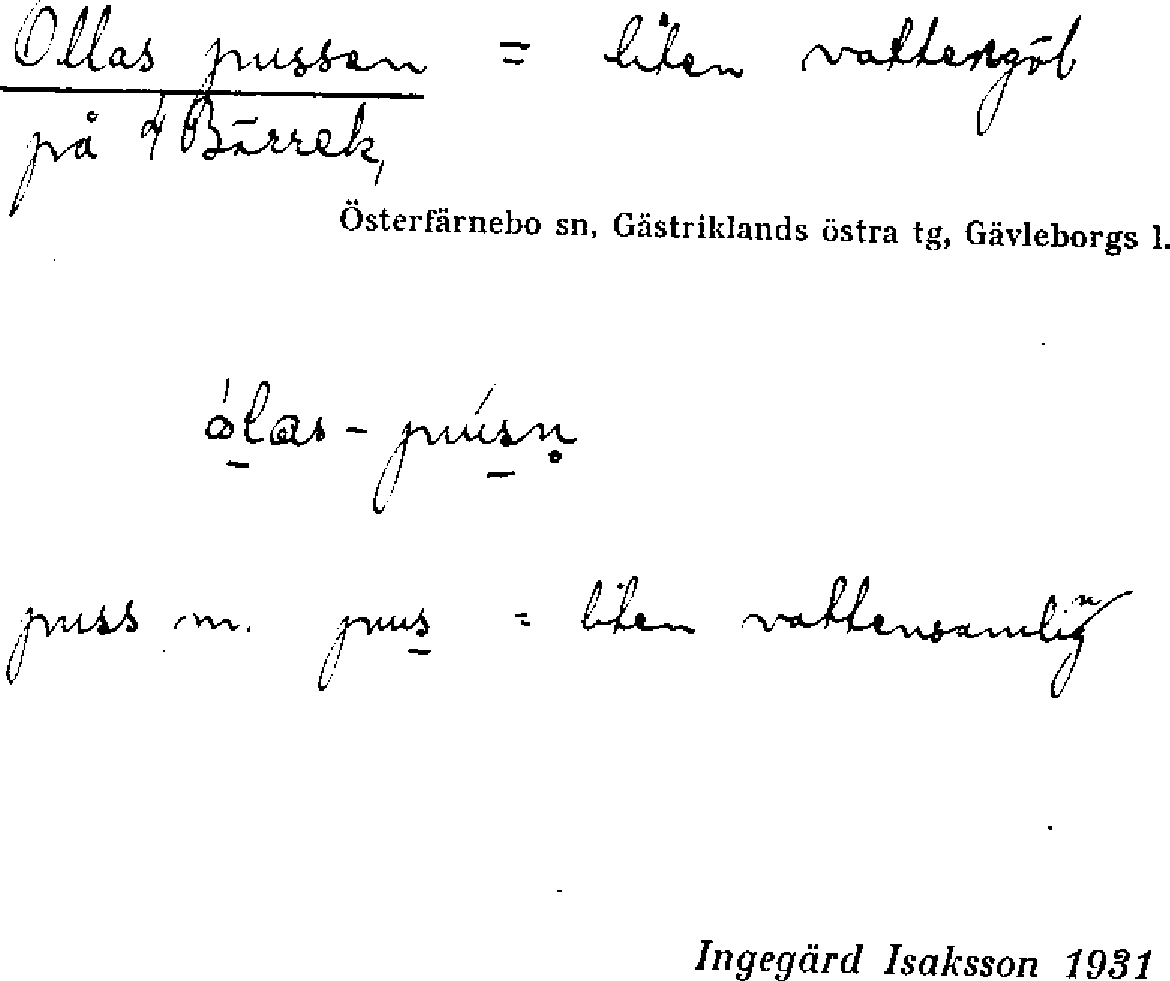 Ollas pussen = liten vattengöl
på Bärrek,
Österfärnebo sn, Gästriklands östra tg, Gävleborgs l.
ólas - púsn̥
puss m. pus = liten vattensamlig
Ingegärd Isaksson 1931